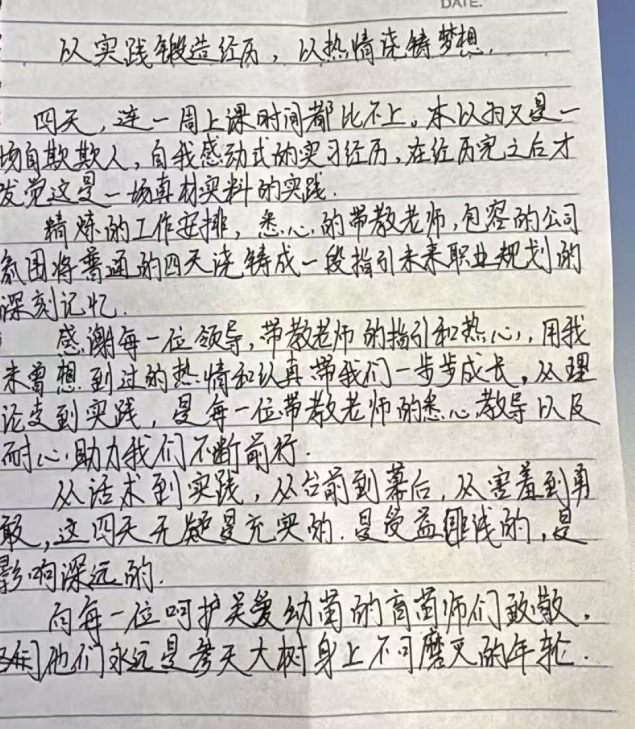 DATE.
以实践锻造经历，以热情浇铸梦想.
四天，连一周上课时间都比不上。本以为又是一
场自欺欺人，自我感动式的实习经历，在经历完之后才
发觉这是一场真材实料的实践.
精炼的工作安排，悉心的带教老师，包容的公司
氛围将普通的四天浇铸成一段指引未来职业规划的
深刻记忆.
感谢每一位领导，带教老师的指引和热心，用我
未曾想到过的热情和认真带我们一步步成长，从理
论支到实践，是每一位带教老师的悉心教导以及
耐心助力我们不断前行.
从话术到实践，从台前到幕后，从害羞到勇
敢，这四天无疑是充实的.是受益匪浅的，是
影响深远的.
向每一位呵护关爱幼苗的育苗师们致敬，
他们永远是参天大树身上不可磨灭的年轮.